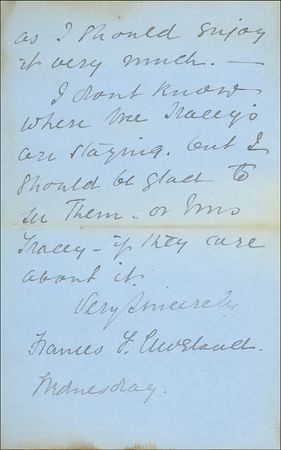 as I should enjoy
it very much. —
I dont know
where the Tracey's
are staying. but I
should be glad to
see them - or Mrs
Tracey - if they care
about it.
Very Sincerely
Frances F. Cleveland.
Wednesday.